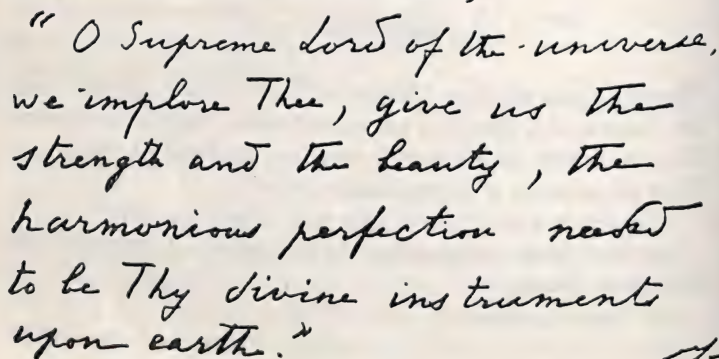 “ O Supreme Lord of the universe,
we implore Thee, give us the
strength and the beauty, the
harmonious perfection needed
to be Thy divine instruments
upon earth.”